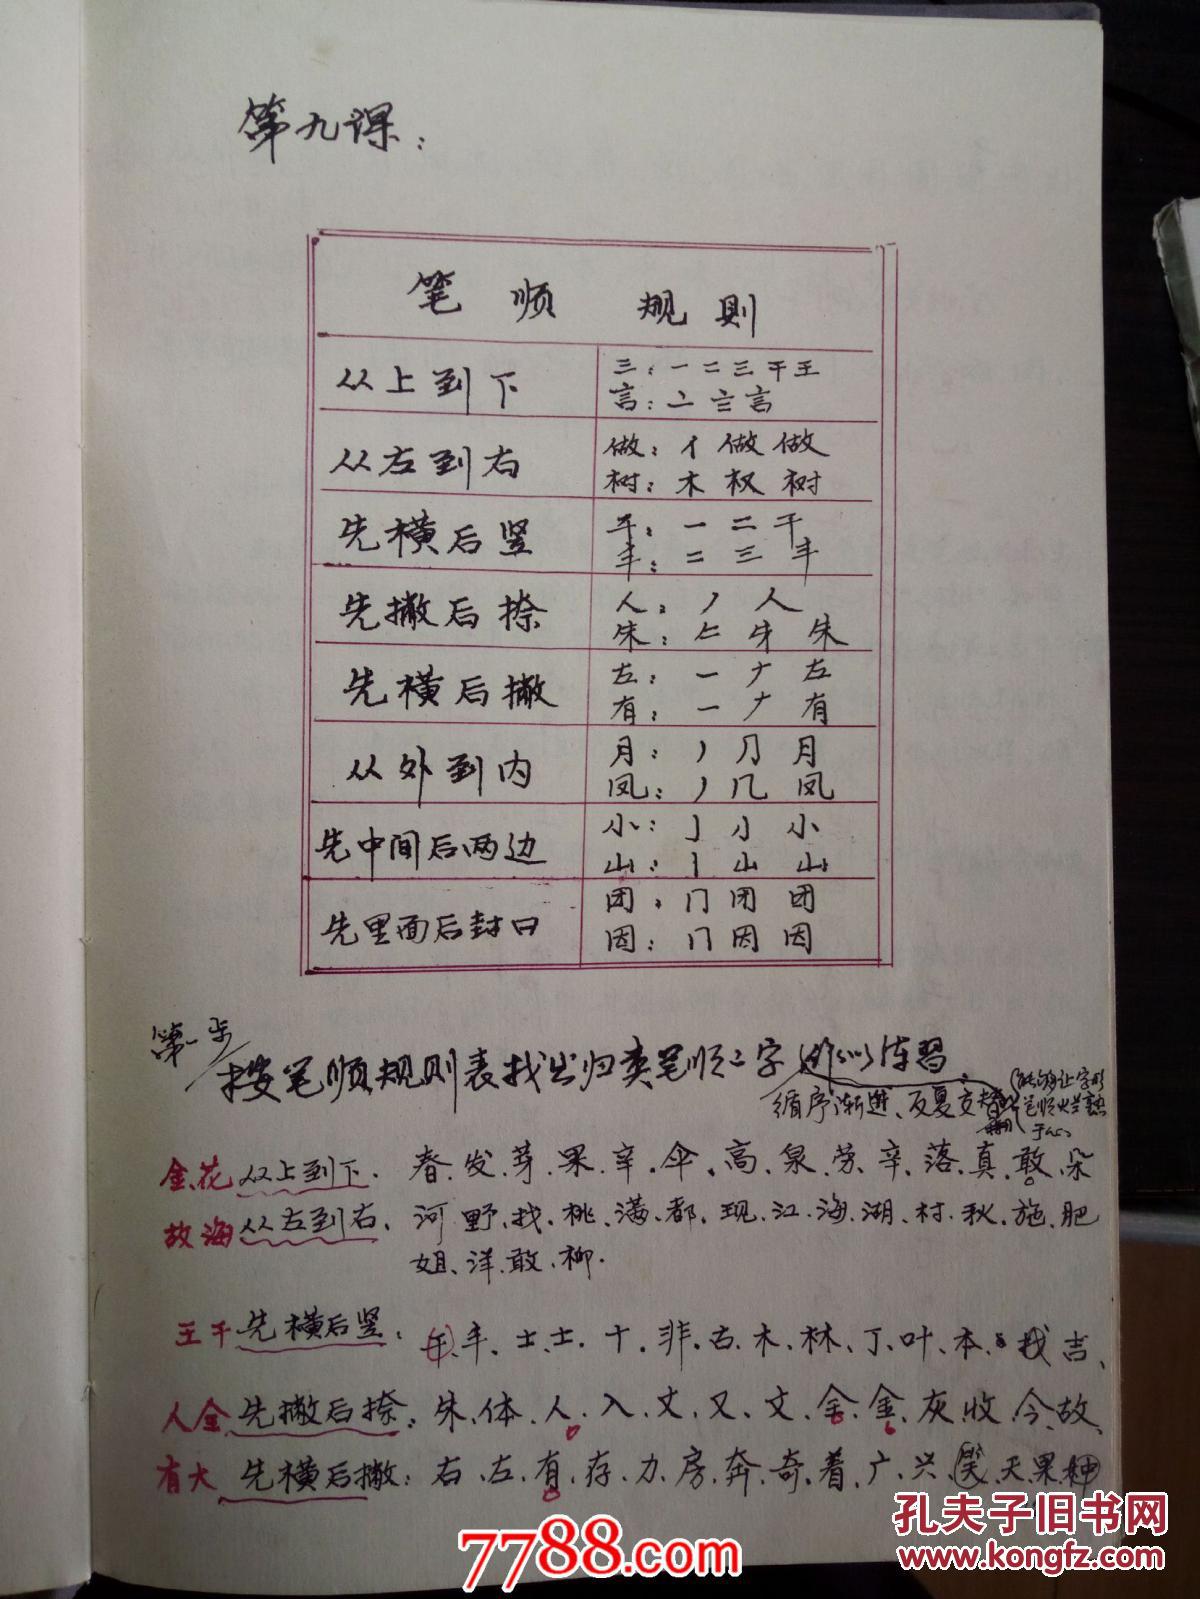 第九课：
笔顺规则
从上到下
三：一二三干王
言：亠言言
从左到右
做：亻做做
树：木权树
先横后竖
干：一二干
丰：二三丰
先撇后捺
人：丿人
朱：𠂉牛朱
先横后撇
左：一𠂇左
有：一𠂇有
从外到内
月：丿⺆月
凤：丿几凤
先中间后两边
小：亅小
山：丨山山
先里面后封口
团：冂团团
因：冂因因
第一步
按笔顺规则表找出归类笔顺之字 练习
循序渐进、反复交替
能够让字形
笔顺烂熟
于心
金.花 从上到下. 春.发.芽.果.辛.伞.高.泉.劳.辛.落.真.敢.朵
故海 从左到右. 河野.找.桃.满.都.现.江.海.湖.村.秋.施.肥
姐、洋.敢.柳.
王干 先横后竖： 年.丰.士.士.十.非.古.木.林.丁.叶.本.找吉、
人金 先撇后捺. 朱.体.人.入.丈.又.文.金.金.灰.收.今.故、
有大 先横后撇： 右.左.有.存.力.房.奔.奇.着.广.兴.笑.天.果神
7788.com
孔夫子旧书网
www.kongfz.com